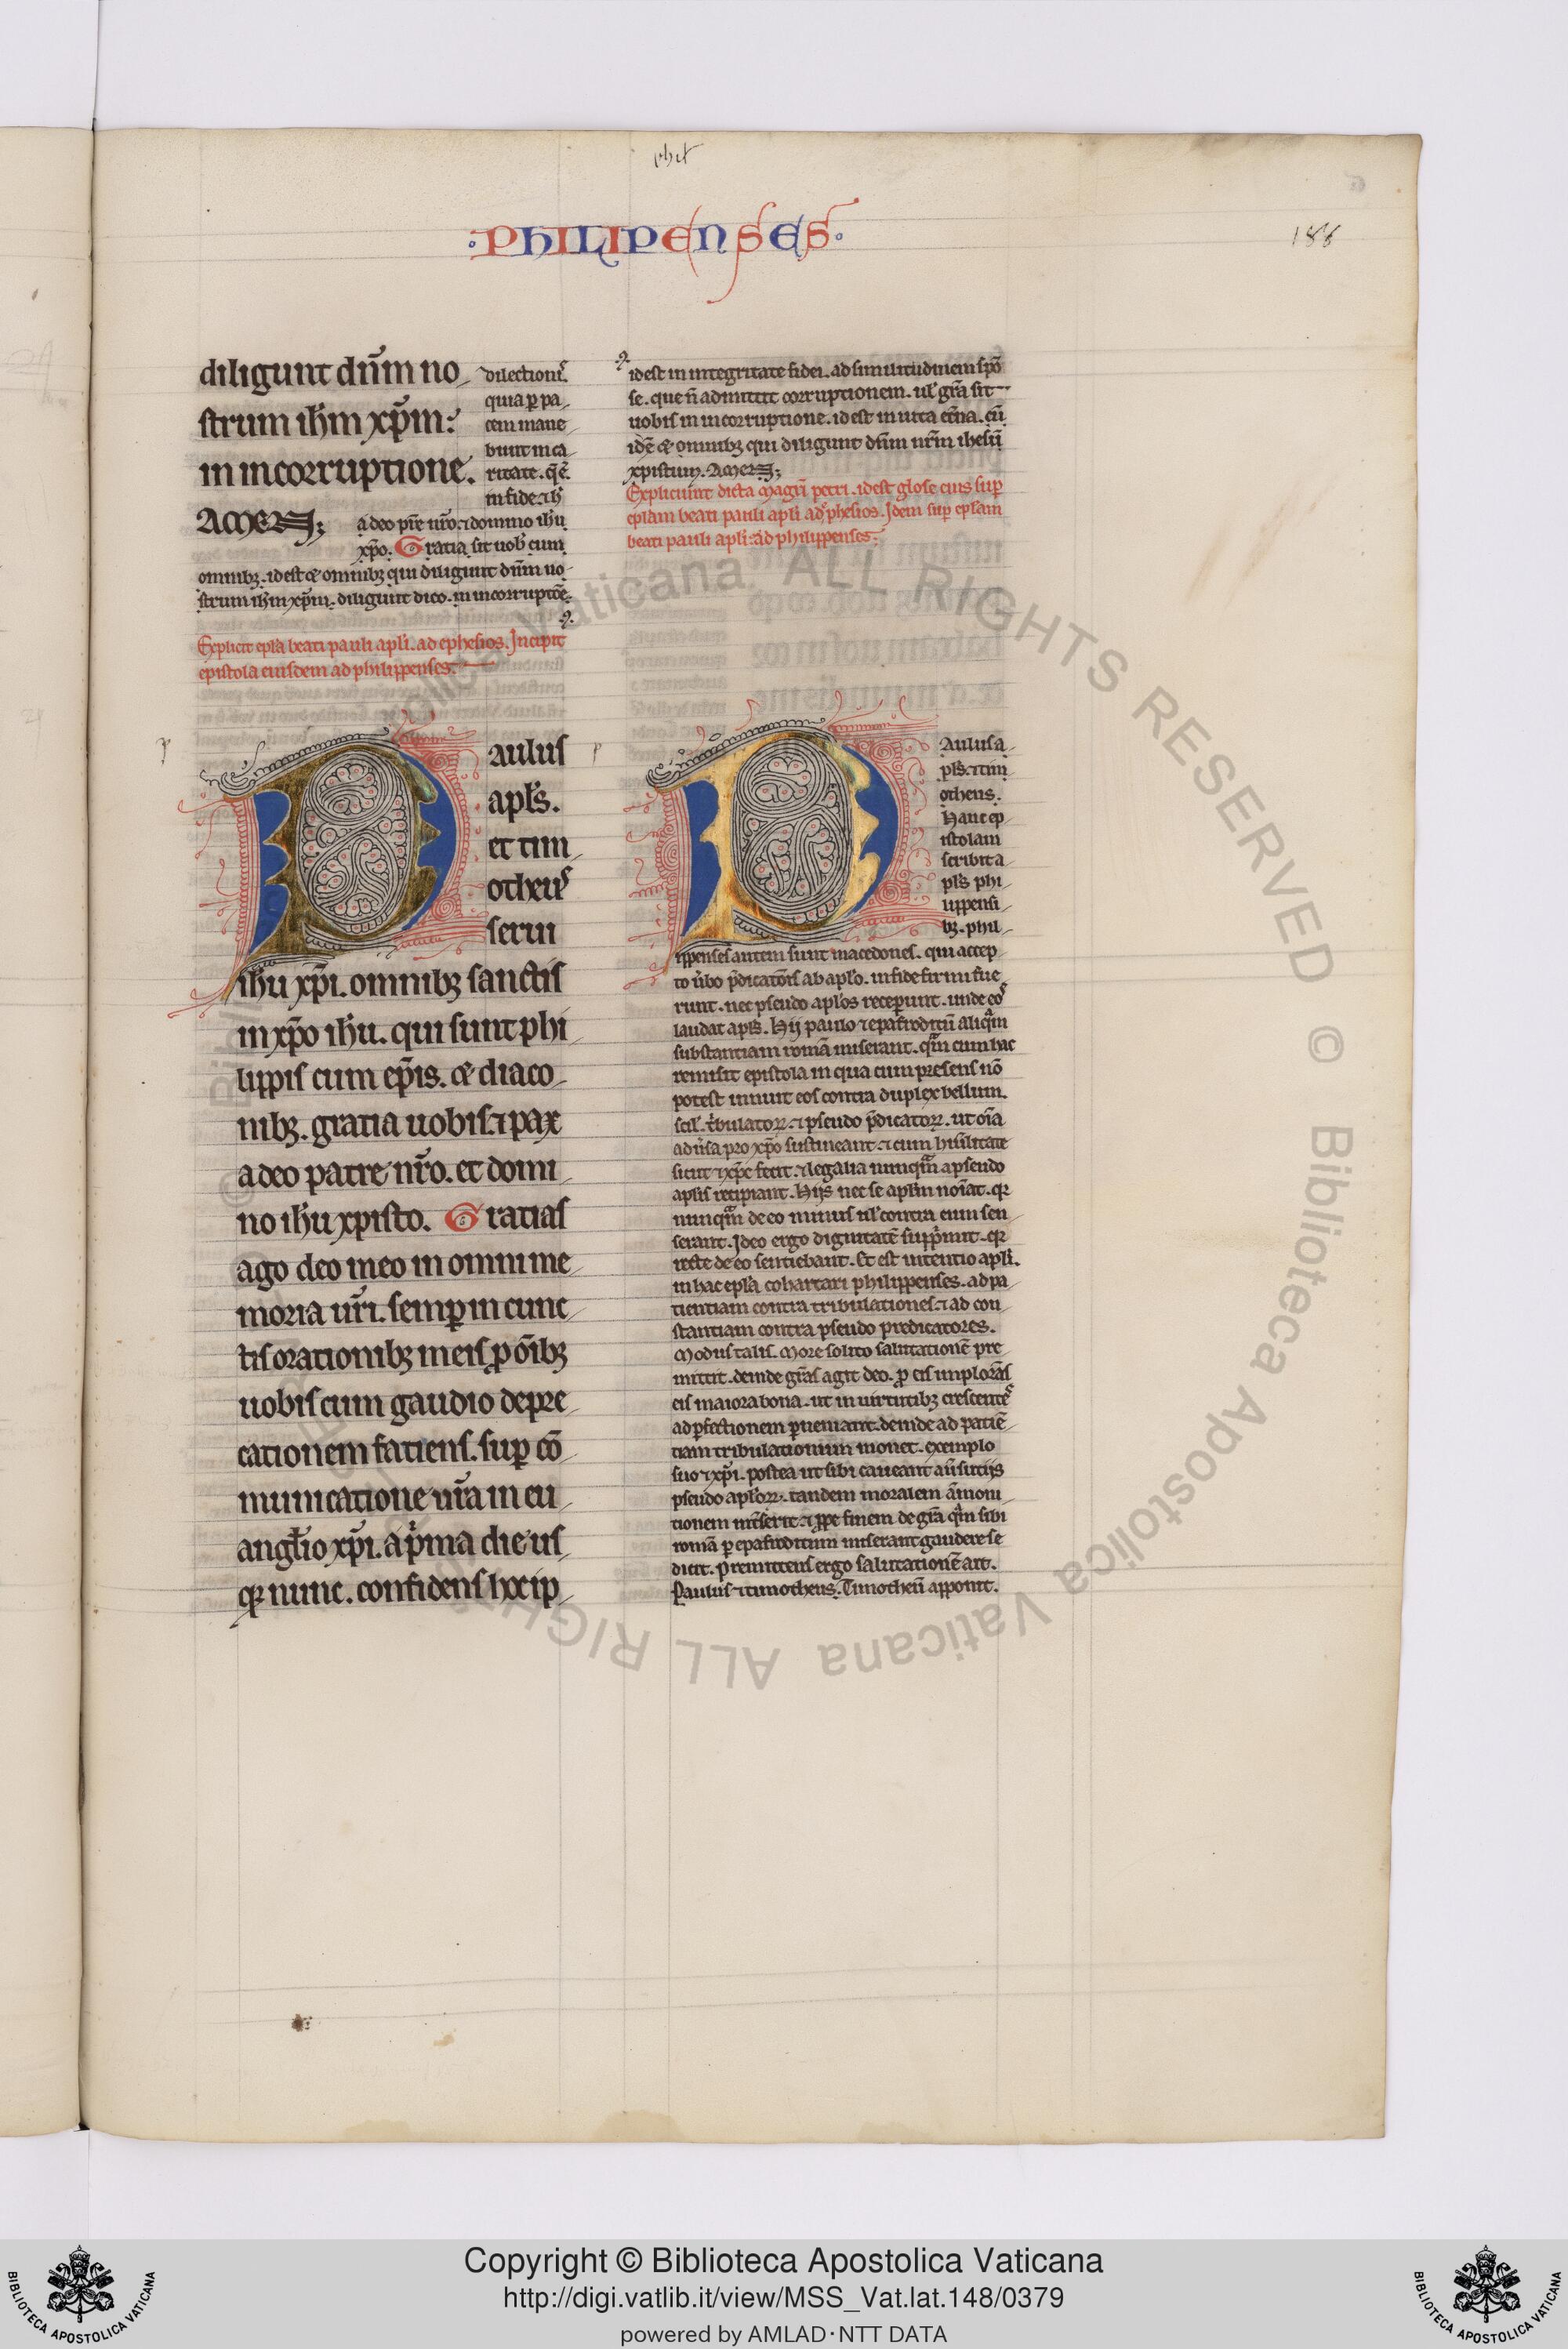 phil
·PHILIPENSES·
188
diligunt dn̄m no
strum ih̄m xp̄m:
in incorruptione.
AMEN;
dilectionis
quia p̱ pa
cem mane
bunt in ca
ritate. q̄ ē
in fide. ⁊
a deo pr̄e nr̄o. ⁊ domino ih̄u
xp̄o. Gratia sit uob̄ cum
omnibꝫ. id est ⁊ omnibꝫ qui diligunt dn̄m no
strum ih̄m xp̄m. diligunt dico. in incorruptōe.
Explicit epl̄a beati pauli apl̄i. ad ephesios. Incipit
epistola eiusdem ad philippenses.
p
Paulus
apl̄s.
et tim
otheus
serui
ih̄u xp̄i. omnibꝫ sanctis
in xp̄o ih̄u. qui sunt phi
lippis cum ep̄is. ⁊ diaco
nibꝫ. gratia uobis. ⁊ pax
a deo patre nr̄o. et domi
no ih̄u xpisto. Gratias
ago deo meo in omni me
moria ur̄i. semp̱ in cunc
tis orationibꝫ meis ꝓ om̄ibꝫ
uobis cum gaudio depre
cationem faciens. sup̱ cō
municatione ur̄a in eu
angl̄io xp̄i. a p̄ma die us
qꝫ nunc. confidens hoc ip
id est in integritate fidei. ad similitudinem spō
se. que n̄ admittit corruptionem. ul̄ gr̄a sit
uobis in incorruptione. id est in uita et̄na. cū
idē ⁊ omnibꝫ qui diligunt dn̄m nr̄m ihesū
xpistum. AMEN;
Expliciunt dicta magr̄i petri. id est glose eius sup̱
epl̄am beati pauli apl̄i ad ephesios. Idem sup̱ epl̄am
beati pauli apl̄i: ad philippenses.
p
Paulus a
pl̄s. ⁊ tim
otheus.
Hanc ep
istolam
scribit a
pl̄s phi
lippensi
bꝫ. phil
ippenses autem sunt macedones. qui accep
to ūbo p̄dicatōis ab apl̄o. in fide firmi fue
runt. nec pseudo apl̄os receperunt. unde eos
laudat apl̄s. Hij paulo ⁊ epafroditū aliq̄m
substantiam romā miserant. q̄m cum hac
remisit epistola in qua cum presens nō
potest munit eos contra duplex bellum.
scil̄. t̄bulatoꝝ. ⁊ pseudo p̄dicatoꝝ. ut om̄ia
adūsa pro xp̄o sustineant. ⁊ cum humilitate
sicut ⁊ xp̄c fecit. ⁊ legalia nunq̄m a pseudo
apl̄is recipiant. Hijs nec se apl̄m noīat. qꝫ
nunq̄m de eo minus ul̄ contra eum sen
serant. Ideo ergo dignitatē supp̄mit. qꝫ
recte de eo sentiebant. Et est intentio apl̄i.
in hac epl̄a cohartari philippenses. ad pa
tientiam contra tribulationes. ⁊ ad con
stantiam contra pseudo predicatores.
Modus talis. More solito salutationē pre
mittit. deinde gr̄as agit deo. ꝓ eis implorās
eis maiora bona. ut in uirtutibꝫ crescentes
ad p̱fectionem p̱ueniant. deinde ad patiē
tiam tribulationum monet. exemplo
suo ⁊ xp̄i. postea ut sibi caueant a ūsutijs
pseudo apl̄oꝝ. tandem moralem āmoni
tionem int̄serit. ⁊ ꝓpe finem de gr̄a q̄m sibi
romā p̱ epafroditum miserant gaudere se
dicit. premittens ergo salutationē ait.
Paulus ⁊ timotheus. Timotheū apponit.
© Biblioteca Apostolica Vaticana ALL RIGHTS RESERVED © Biblioteca Apostolica Vaticana ALL RIGHTS
BIBLIOTECA APOSTOLICA VATICANA
Copyright © Biblioteca Apostolica Vaticana
http://digi.vatlib.it/view/MSS_Vat.lat.148/0379
powered by AMLAD·NTT DATA
BIBLIOTECA APOSTOLICA VATICANA